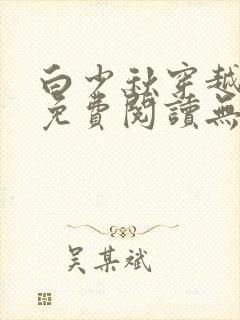 白少秋穿越
免費閱讀無
吴某斌